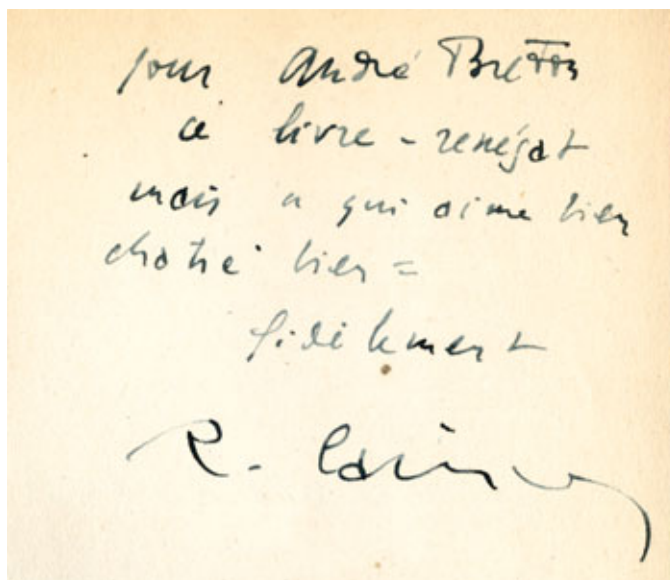 pour André Breton
ce livre - renégat
mais "qui aime bien
chatie bien =
fidèlement
R. Caillois